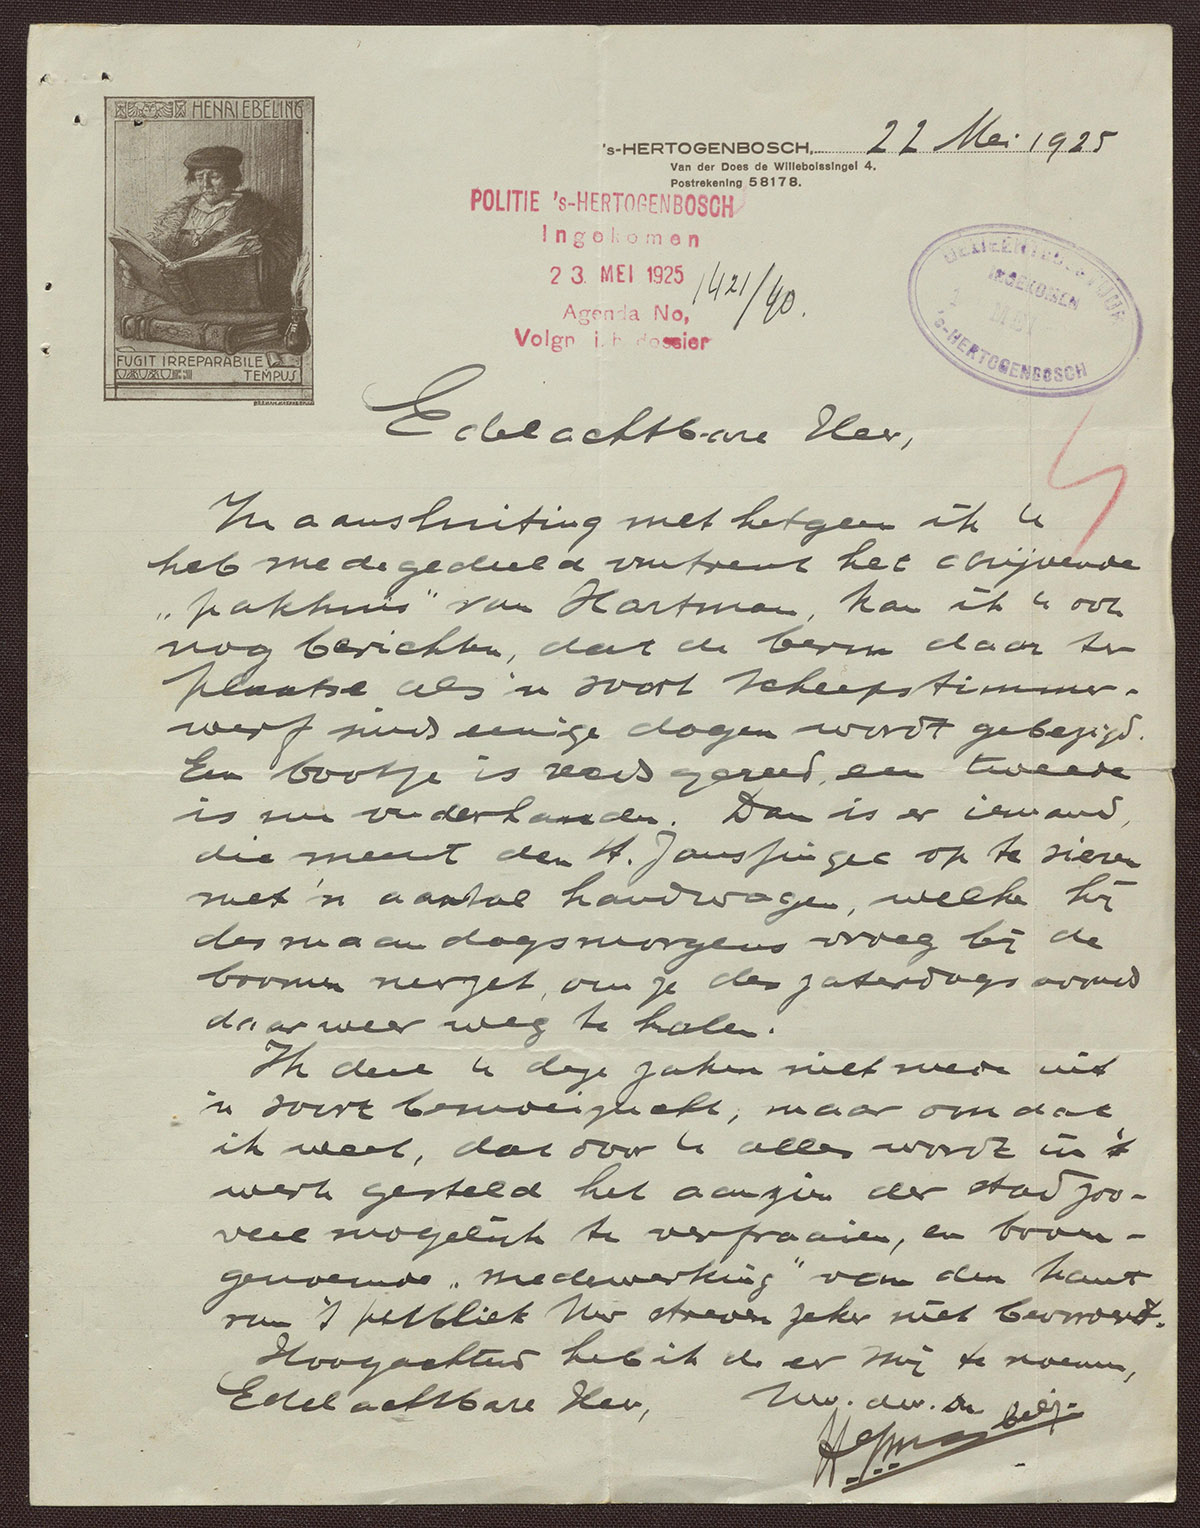 HENRI EBELING
FUGIT IRREPARABILE
TEMPUS
's-HERTOGENBOSCH, 22 Mei 1925
Van der Does de Willeboissingel 4.
Postrekening 58178.
POLITIE 's-HERTOGENBOSCH
Ingekomen
23. MEI 1925
1421/40.
Agenda No,
Volgn i. h. dossier
INGEKOMEN
's-HERTOGENBOSCH
Edelachtbare Heer,
In aansluiting met hetgeen ik U
heb medegedeeld omtrent het drijvende
„pakhuis" van Hartman, kan ik U ook
nog berichten, dat de berm daar ter
plaatse als 'n soort scheepstimmer-
werf sinds eenige dagen wordt gebezigd.
Een bootje is reeds gereed, een tweede
is nu onderhanden. Dan is er iemand,
die meent den St. Janssingel op te sieren
met 'n aantal handwagen, welke hij
des maandagsmorgens vroeg bij de
boomen neerzet, om ze des zaterdags avonds
daar weer weg te halen.
Ik deel U deze zaken niet mede uit
'n soort bemoeizucht, maar omdat
ik weet, dat door U alles wordt in 't
werk gesteld het aanzien der stad zoo-
veel mogelijk te verfraaien, en boven-
genoemde „medewerking" van den kant
van 't publiek Uw streven zeker niet bevordert.
Hoogachtend heb ik de eer mij te noemen,
Edelachtbare Heer, Uw. dw. Dn